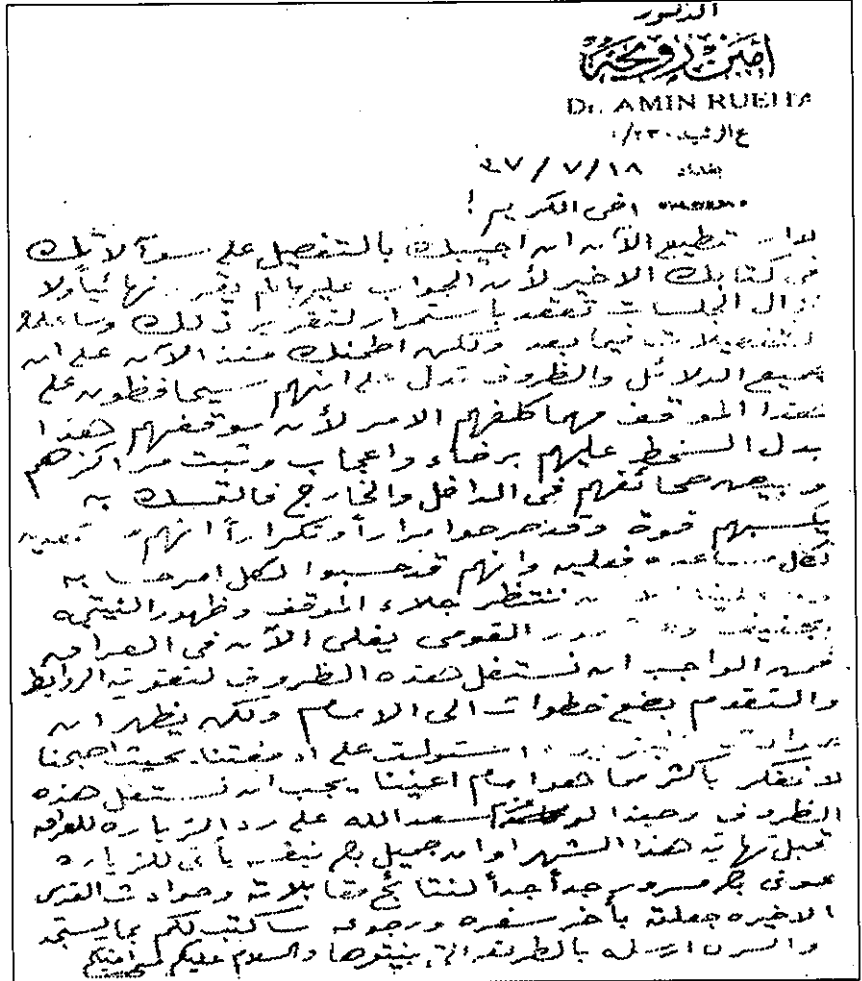 الدكتور
امين رويحة
Dr. AMIN RUEIHA
ع الرشيد ٢٣٠/١
بغداد ٣٧/٧/١٨
اخي الكريم!
تطيع الآن ان اجيبك بالتفصيل على سوآلاتك
في كتابك الاخير لأن الجواب عليها لم يقر نهائياً ولا
تزال الجلسات تعقد باستمرار لتقرير ذلك وساعلمك
التفصيلات فيما بعد ولكن اطمنك منذ الآن على ان
جميع الدلائل والظروف تدل على انهم سيحافظون على
هذا الموقف مهما كلفهم الامر لأن موقفهم هذا
بدل السخط عليهم برضاء واعجاب وثبت مراكزهم
وبيض صحائفهم في الداخل والخارج فالتمسك به
يكسبهم قوة وقد صرحوا مراراً وتكراراً انهم
لكل مساعدة فعليه وانهم قد حسبوا لكل امر حسابه
ننتظر جلاء الموقف وظهور النتيجه
القومي يغلي الآن في العراق
فمن الواجب ان نستغل هذه الظروف لتقوية الروابط
والتقدم بضع خطوات الى الامام ولكن يظهر ان
استولت على ادمغتنا بحيث اصبحنا
لا نفكر باكثر مما هو امام اعيننا يجب ان نستغل هذه
الظروف وحبذا لو سعدالله على رد الزيارة للعراق
قبل نهاية هذا الشهر او ان جميل بك يأتي للزيارة
عوني بك مسرور جداً جداً لنتائج مقابلاته وحوادث القدس
الاخيره جعلته يأخر سفره ورجوعه ساكتب لكم بما يستجد
ارسله بالطريقة التي والسلام عليكم